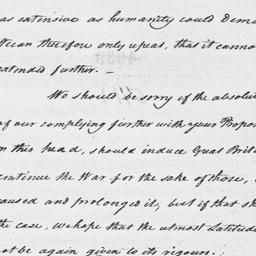 as extensive as humanity could dema
We can therefore only repeat, that it cannot
extended further. —
We should be sorry if the absolu
of our complying further with your Propo
on this head, should induce Great Brit
continue the War for the sake of those,
caused and prolonged it, but if that sh
the case, we hope that the utmost Latitude
not be again given to its rigours.